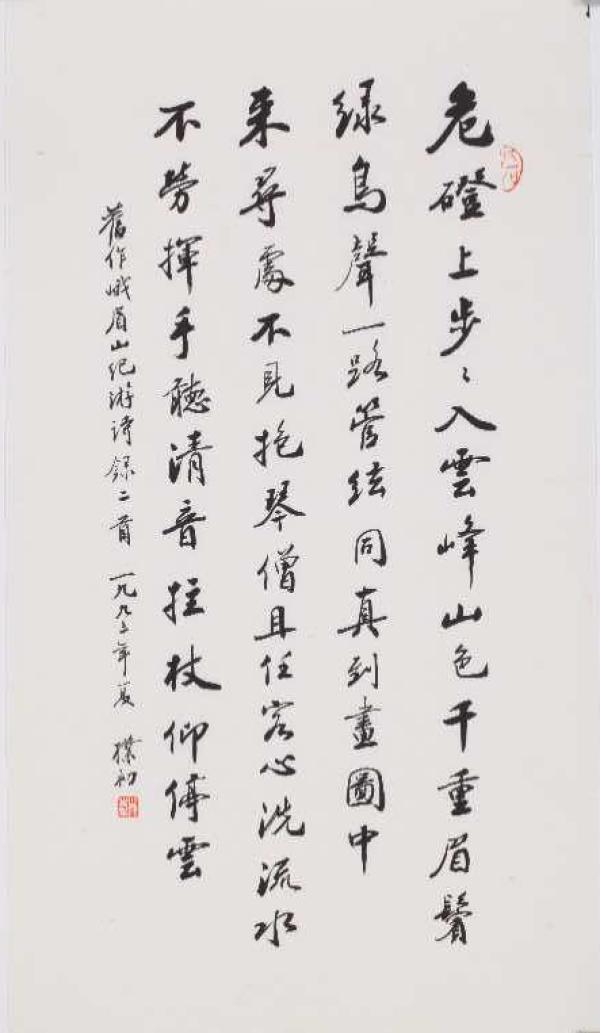 危磴上步々入雲峰山色千重眉鬢
绿鳥聲一路管絃同真到畫圖中
来尋處不見抱琴僧且任客心洗流水
不勞揮手聽清音拄杖仰停雲
舊作峨眉山纪游诗錄二首 一九九年夏 樸初